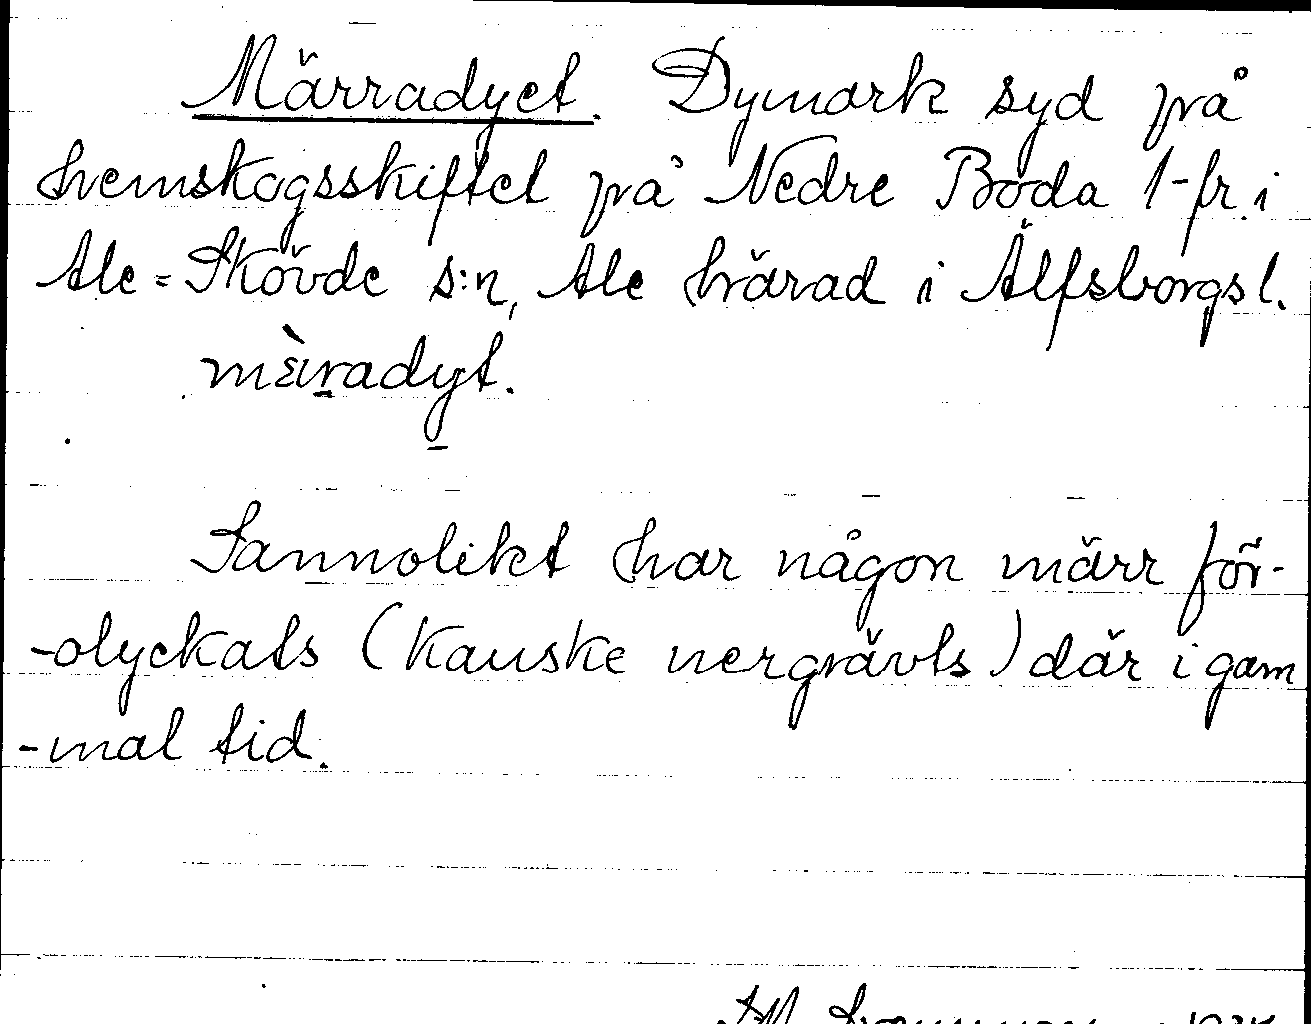 Märradyet. Dymark syd på
hemskogsskiftet på Nedre Boda 1-fr. i
Ale=Skövde s:n, Ale härad i Älfsborgs l.
mæ̀radyt.
Sannolikt har någon märr för-
-olyckats (kanske nergrävts) där i gam
-mal tid.